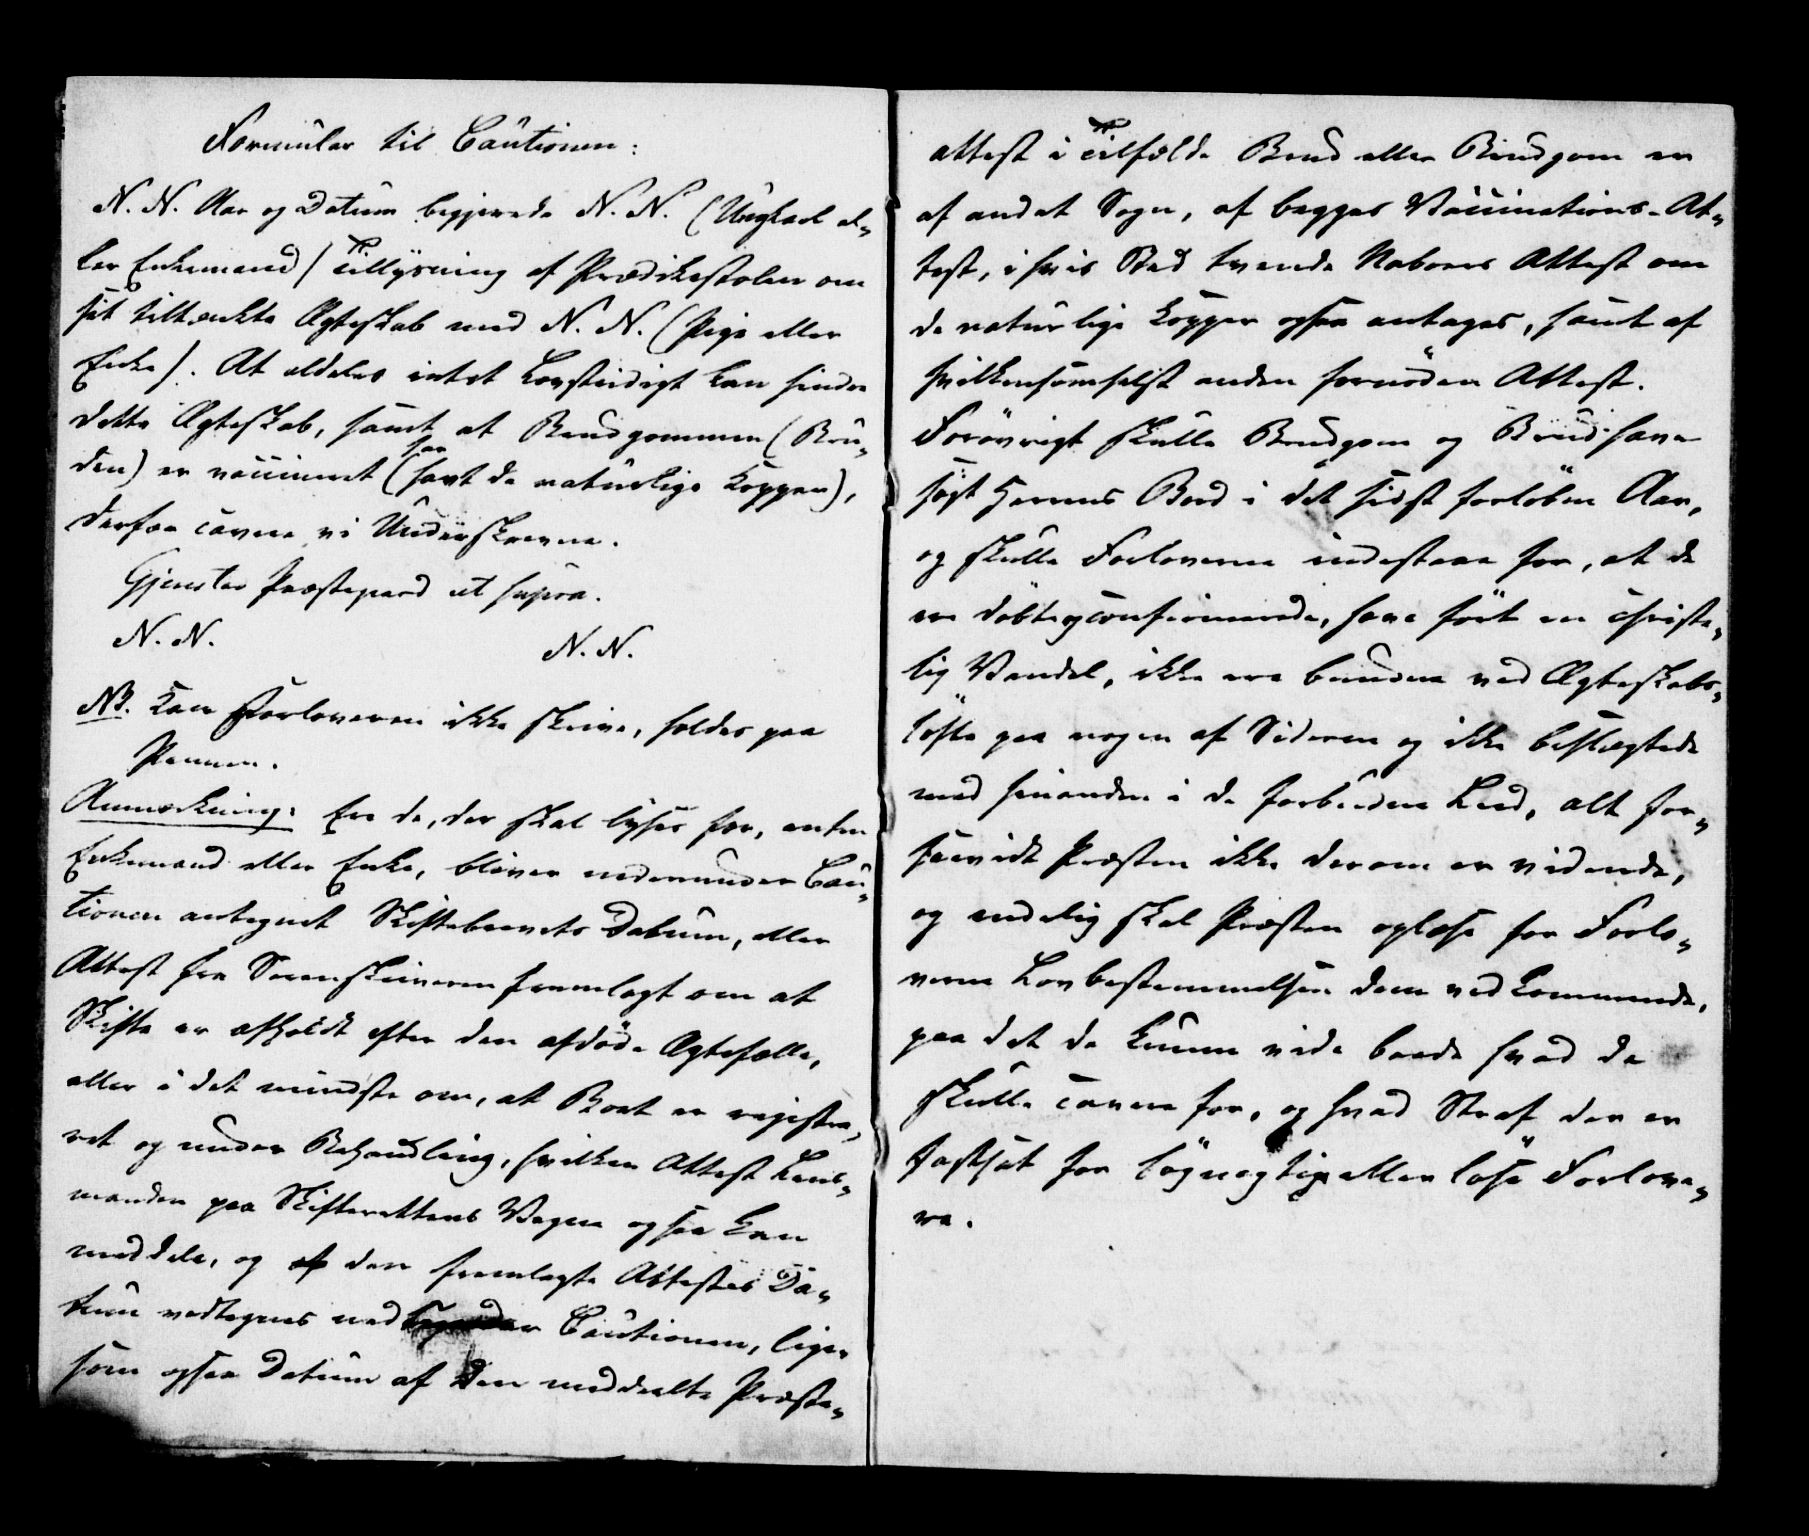 Formular til Cautionen:
N. N. Aar og Datum begjerede N. N. (Ungkarl el-
ler Enkemand) Tillysning af Prædikestolen om
sit tiltænkte Ægteskab med N. N. (Pige eller
Enke). At aldeles intet Lovstridigt kan hindre
dette Ægteskab, samt at Brudgommen (Bru-
den) er vaccineret (har havt de naturlige Kopper),
derfor cavere vi Underskrevne.
Præstegaard ut supra.
N. N. N. N.
NB. Kan Forloveren ikke skrive, holdes paa
Pennen.
Anmærkning. Ere de, der skal lyses for, enten
Enkemand eller Enke, bliver nedenunder Cau-
tionen antegnet Skiftebrevets Datum, eller
Attest fra Sorenskriveren fremlagt om at
Skifte er afholdt efter den afdöde Ægtefælle,
eller i det mindste om, at Boet er registre-
ret og under Behandling, hvilken Attest Lens-
manden paa Skifterettens Vegne ogsaa kan
meddele, og af den fremlagte Attestes Da-
tum vedtegnes ved Cautionen, lige-
som ogsaa Datum af den meddeelte Præste-
attest i Tilfælde Brud eller Brudgom er
af andet Sogn, af begges Vaccinations-At-
test, i hvis Sted tvende Naboers Attest om
de naturlige Kopper ogsaa antages, samt af
hvilkensomhelst anden fornöden Attest.
Forövrigt skulle Brudgom og Brud have
sögt Herrens Bord i det sidst forlöbne Aar,
og skulle Forloverne indestaae for, at de
ere döbte og confirmerede, have fört en christe-
lig Vandel, ikke ere bundne ved Ægteskabs-
löfte paa nogen af Siderne og ikke beslægtede
med hinanden i de forbudne Leed, alt for-
saavidt Præsten ikke derom er vidende,
og endelig skal Præsten oplæse for Forlo-
verne Lovbestemmelsen dem vedkommende,
paa det de kunne vide baade hvad de
skulle cavere for, og hvad Straf der er
fastsat for lögnagtige eller löse Forlove-
re.